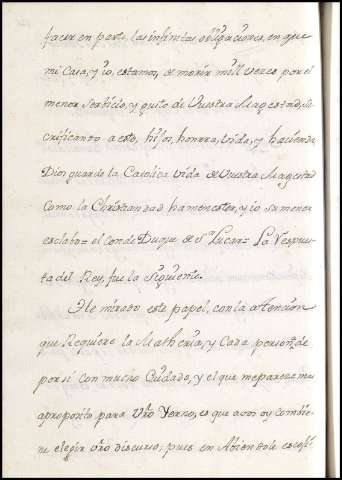 facer en parte, las infinitas obligaciones, en que
mi Casa, y io, estamos, de morir mill vezes por el
menor servicio, y guto de Vuestra Magestad, sa
crificando a esto, hijos, honrra, vida, y hacienda
Dios guarde la Catolica vida de Vuestra Magestad
como la Christiandad ha menester, y io su menor
esclabo = el conde Duque de Sn Lucar = La Respues
ta del Rey, fue la siguiente.
He mirado este papel, con la attencion
que Requiere la Matheria, y Cada persona de
por si con mucho Cuidado, y el que me parece mas
aproposito para Vro Yerno, es que a vos oy combie
ne elegir vro discurso; pues en